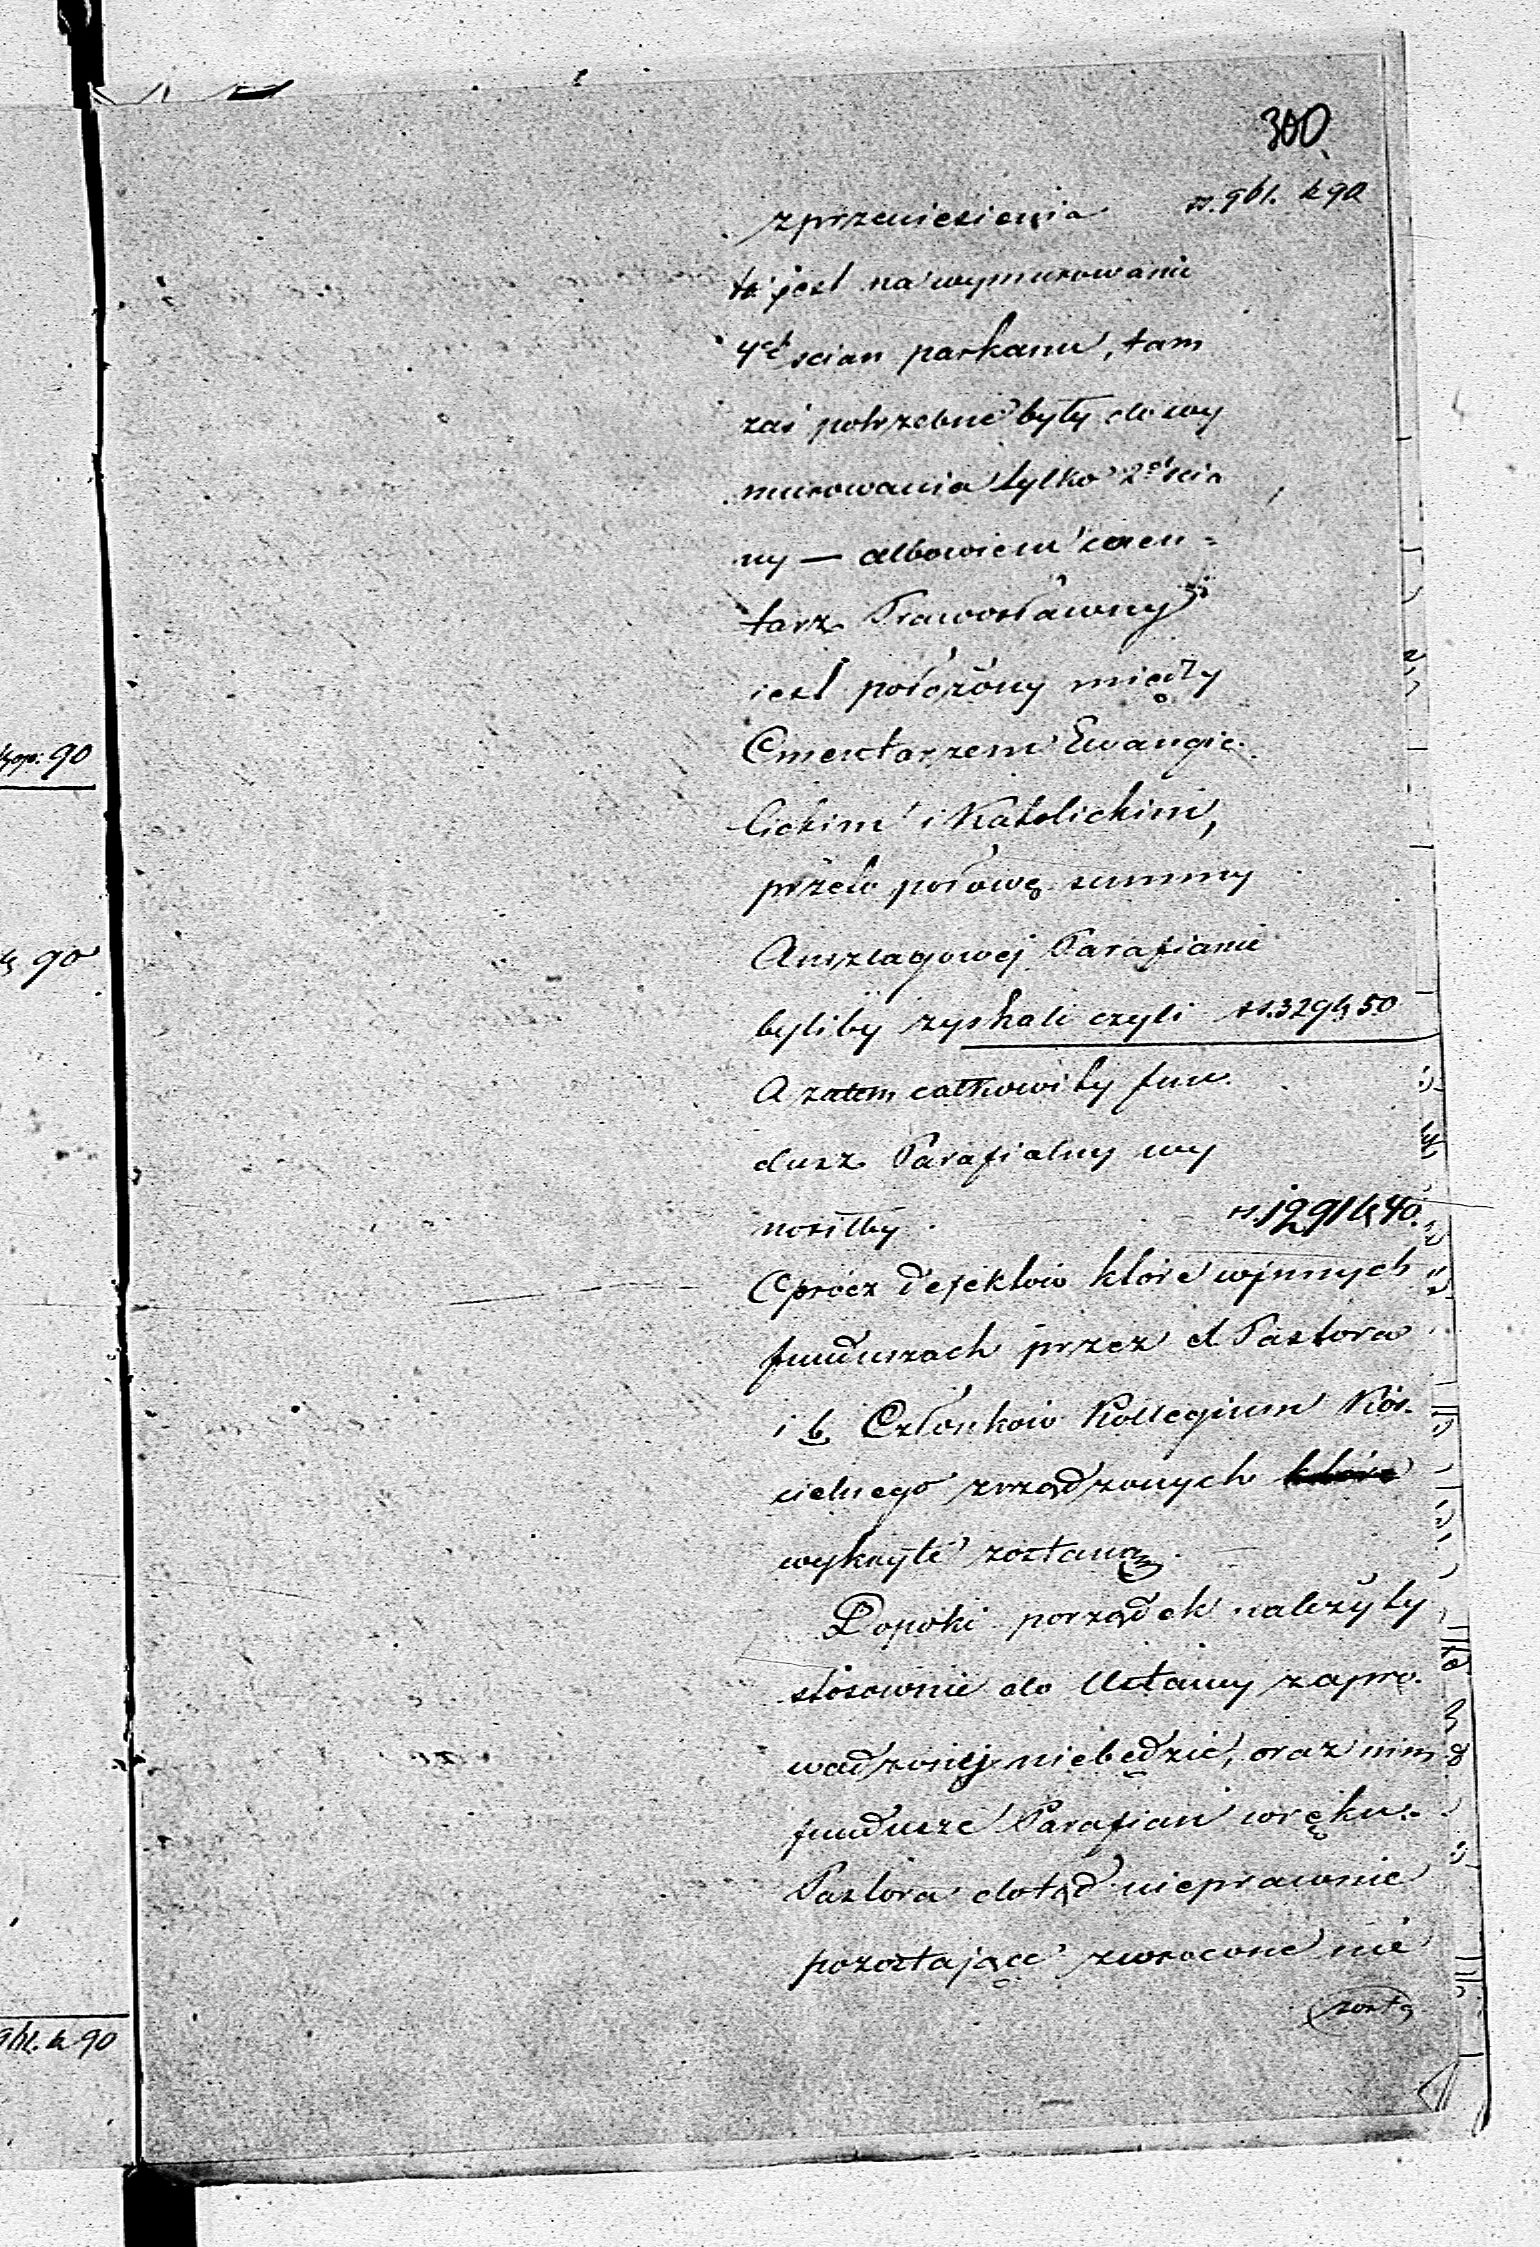 300
z przeniesienia rs. 961. k 90
ta jest na wymurowanie
4ch scian parkanu, tam
zaś potrzebne były do wy
murowania tylko 2ch scia
ny — albowiem cmen=
tarz Prawosławny
jest położony między
Cmentarzem Ewangie-
lickim i Katolickim,
przeto połowę summy
Anszlagowej Parafianie
byliby zyskali czyli rs. 329 k 50
A zatem całkowity fun-
dusz Parafialny wy
nosiłby rs. 1291 k 40.
Oprócz defektów które w innych
funduszach przez Pastora
i b. Członków Kollegium Koś-
cielnego zrządzonych które
wykryte zostaną.
Dopóki porządek należyty
stósownie do Ustawy zapro-
wadzonej niebędzie, oraz nim
fundusze Parafian w ręku
Pastora dotąd nieprawnie
pozostające zwrocone nie
zostą
kop: 90
k 90
961. k 90